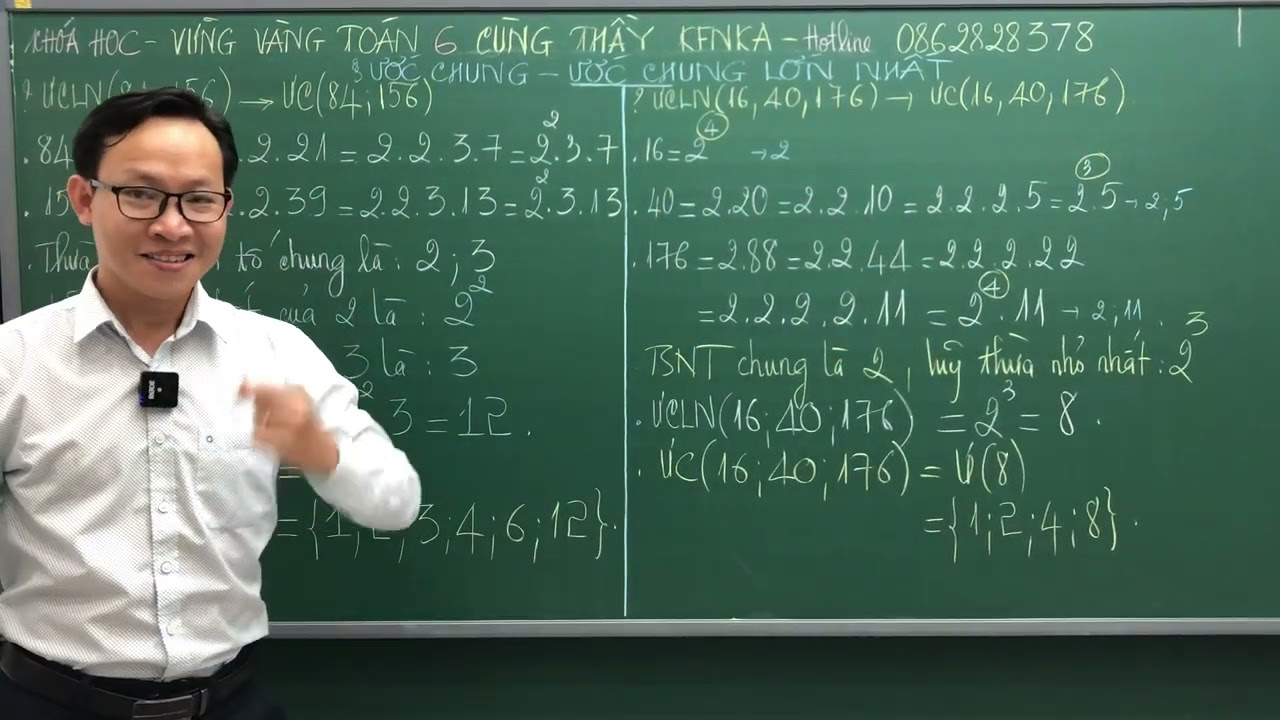 KHÓA HỌC - VỮNG VÀNG TOÁN 6 CÙNG THẦY KENKA - Hotline 0862828378
§ ƯỚC CHUNG - ƯỚC CHUNG LỚN NHẤT
? ƯCLN(84;156) → ƯC(84;156)
. 84 .2.21 = 2.2.3.7 = 2².3.7
. 15 .2.39 = 2.2.3.13 = 2².3.13
. Thừa tố chung là : 2 ; 3
của 2 là : 2²
3 là : 3
².3 = 12 .
=
= {1;2;3;4;6;12}.
? ƯCLN(16,40,176) → ƯC(16,40,176)
. 16 = 2⁴ → 2
. 40 = 2.20 = 2.2.10 = 2.2.2.5 = 2³.5 → 2,5
. 176 = 2.88 = 2.2.44 = 2.2.2.22
= 2.2.2.2.11 = 2⁴.11 → 2,11 .
TSNT chung là 2, luỹ thừa nhỏ nhất : 2³
. ƯCLN(16;40;176) = 2³ = 8 .
. ƯC(16;40;176) = Ư(8)
= {1;2;4;8} .
RØDE